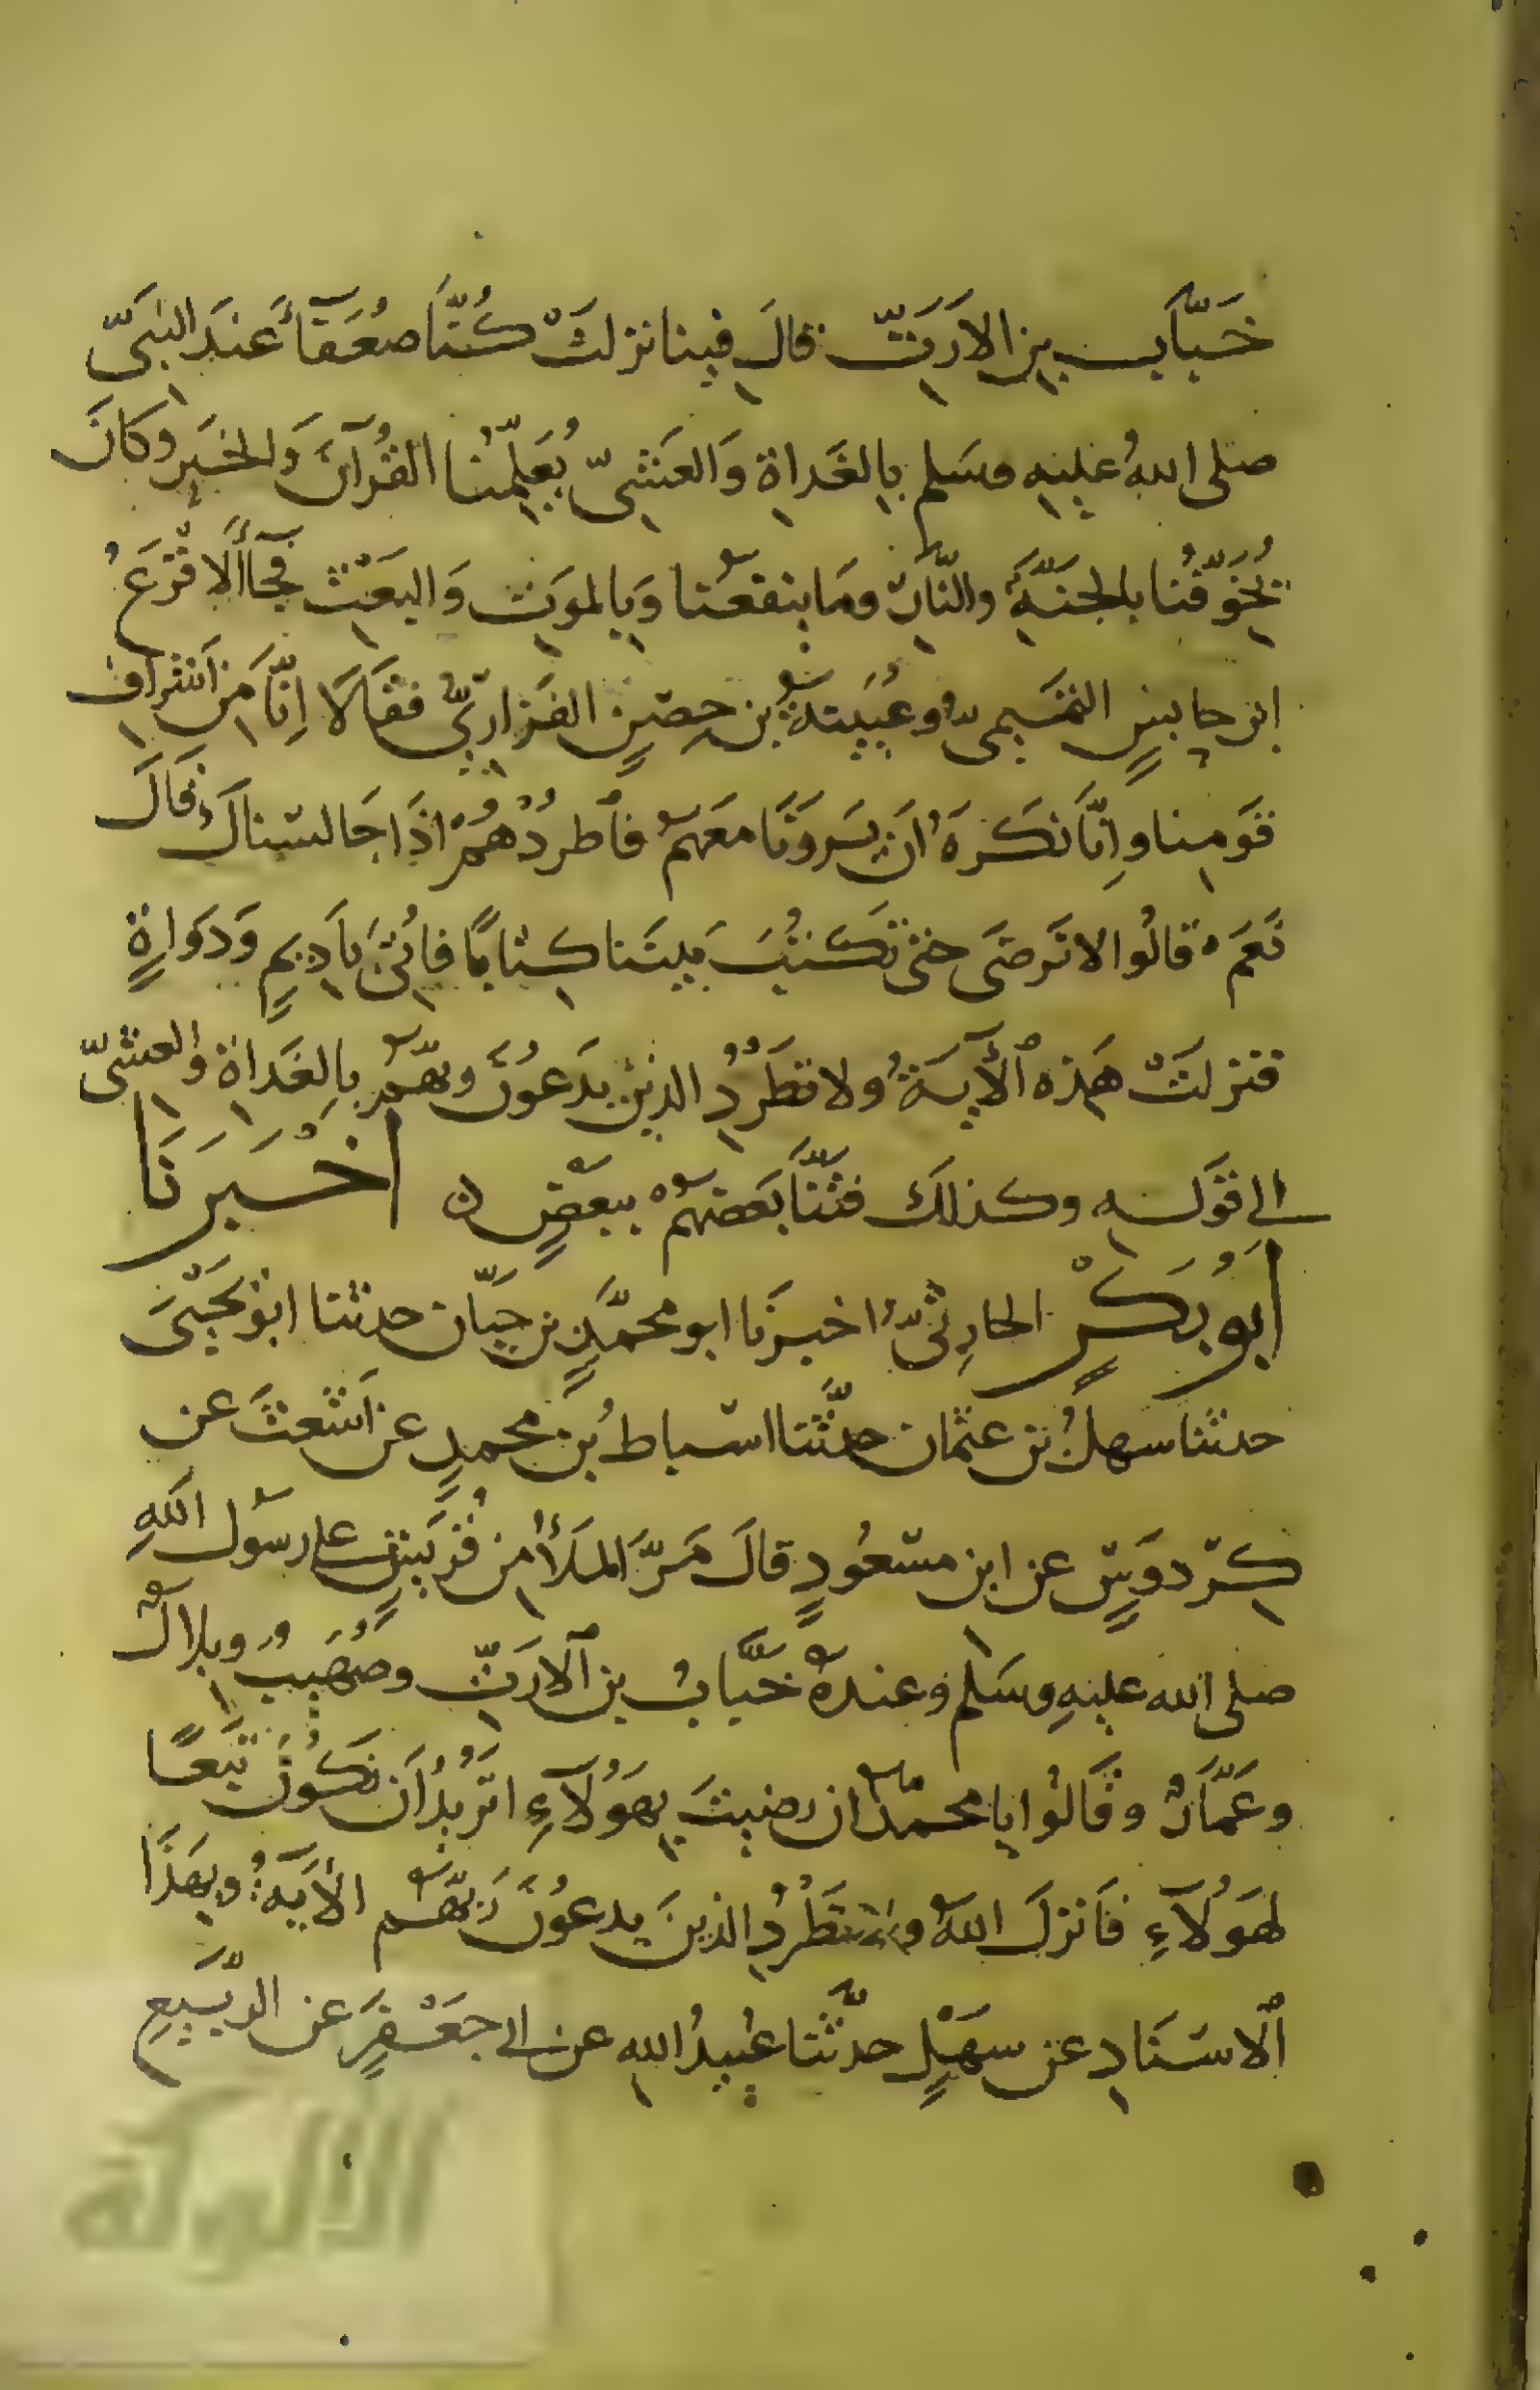 خَبَّاب بنِ الارَتِّ قالَ فينا نزلتْ كُنَّا ضُعَفَآءَ عندَ النبيِّ
صلى اللهُ عليهِ وسَلم بالغَداةِ وَالعَشِيِّ يُعَلِّمُنا القُرآنَ وَالخيرَ وكانَ
يُخوّفُنا بالجنَّةِ والنَّارِ وما ينفعُنا وَبالموتِ وَالبعْثِ فجآءَ الاقْرَعُ
ابن حابسٍ التميمىُّ وعُيَيْنةُ بن حِصْنٍ الفَزاريُّ فقالَا إنَّا من أشرافِ
قَومِنا وإنَّا نكرَهُ ان يَروْنا معَهم فاطردْهُمْ اذَا جَالسْناكَ قالَ
نَعَم قالُوا لا نَرضَى حتى تكتُبَ بيننَا كِتابًا فأُتيَ بأديمٍ وَدَواةٍ
فنزلتْ هَذه الآيةُ ولا تطرُدِ الذين يدعُونَ ربَّهُم بالغداةِ والعشيِّ
الى قولِه وكذلك فتنَّا بَعضَهُم ببعْضٍ اخْبَرَنَا
أبو بَكْرٍ الحارِثيُّ اخبرَنا ابو محمَّدٍ بن حيَّان حدثنا ابو يحْيَى
حدثنا سهلُ بن عثمان حدَّثنا اسباطُ بن محمدٍ عن أشعثَ عن
كِرْدوسٍ عن ابن مسْعُودٍ قالَ مَرَّ الملأُ من قُريشٍ على رسُول اللهِ
صلى الله عليهِ وسَلم وعندهُ خبَّابُ بن الارَتِّ وصُهَيبٌ وبلالٌ
وعَمَّارٌ وقَالُوا يا محمدُ ان رضيتَ بهَؤُلآءِ اتُريدُ أن نكُونَ تبَعًا
لهَؤُلآءِ فَانزلَ اللهُ ولا تَطْرُدِ الذينَ يدعُونَ رَبَّهُم الآيَةُ وبهَذَا
الاسنَادِ عن سهْلٍ حدَّثنا عُبيدُ اللهِ عن ابى جعْفرٍ عن الرَّبيعِ
الألوكة